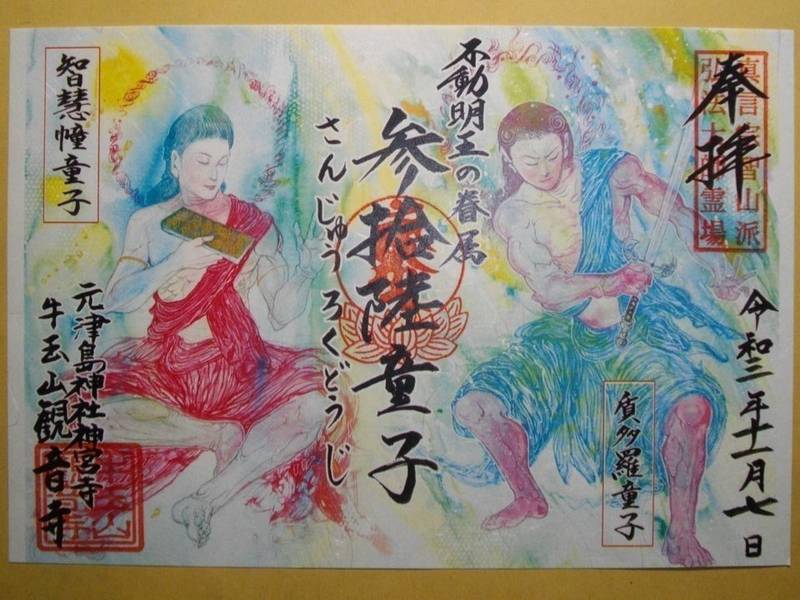 奉拝
真言宗智山派
弘法大師霊場
令和三年十一月七日
不動明王の眷属
参拾陸童子
さんじゅうろくどうじ
質多羅童子
智慧幢童子
元津島神社神宮寺
牛玉山観音寺